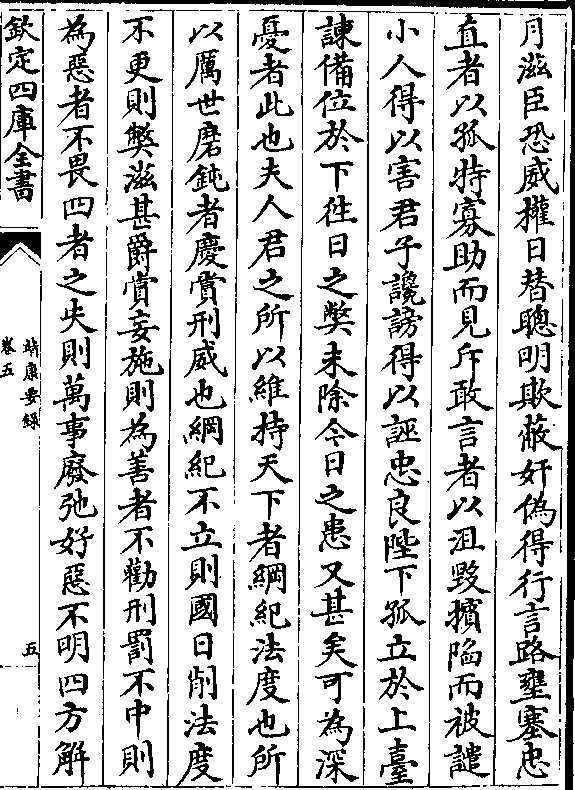 月滋臣恐威權日替聰明欺蔽奸偽得行言路壅塞忠
直者以孤特寡助而見斥敢言者以沮毀擯陷而被譴
小人得以害君子讒謗得以誣忠良陛下孤立於上臺
諫備位於下徃日之弊未除今日之患又甚矣可為深
憂者此也夫人君之所以維持天下者綱紀法度也所
以厲世磨鈍者慶賞刑威也綱紀不立則國日削法度
不更則弊滋甚爵賞妄施則為善者不勸刑罰不中則
為惡者不畏四者之失則萬事廢弛好惡不明四方解
欽定四庫全書
靖康要錄
卷五
五